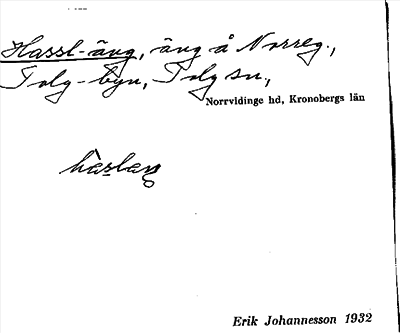 Hassl-äng, äng å Norreg.,
Tolg-byn, Tolg sn,
Norrvidinge hd, Kronobergs län
Erik Johannesson 1932